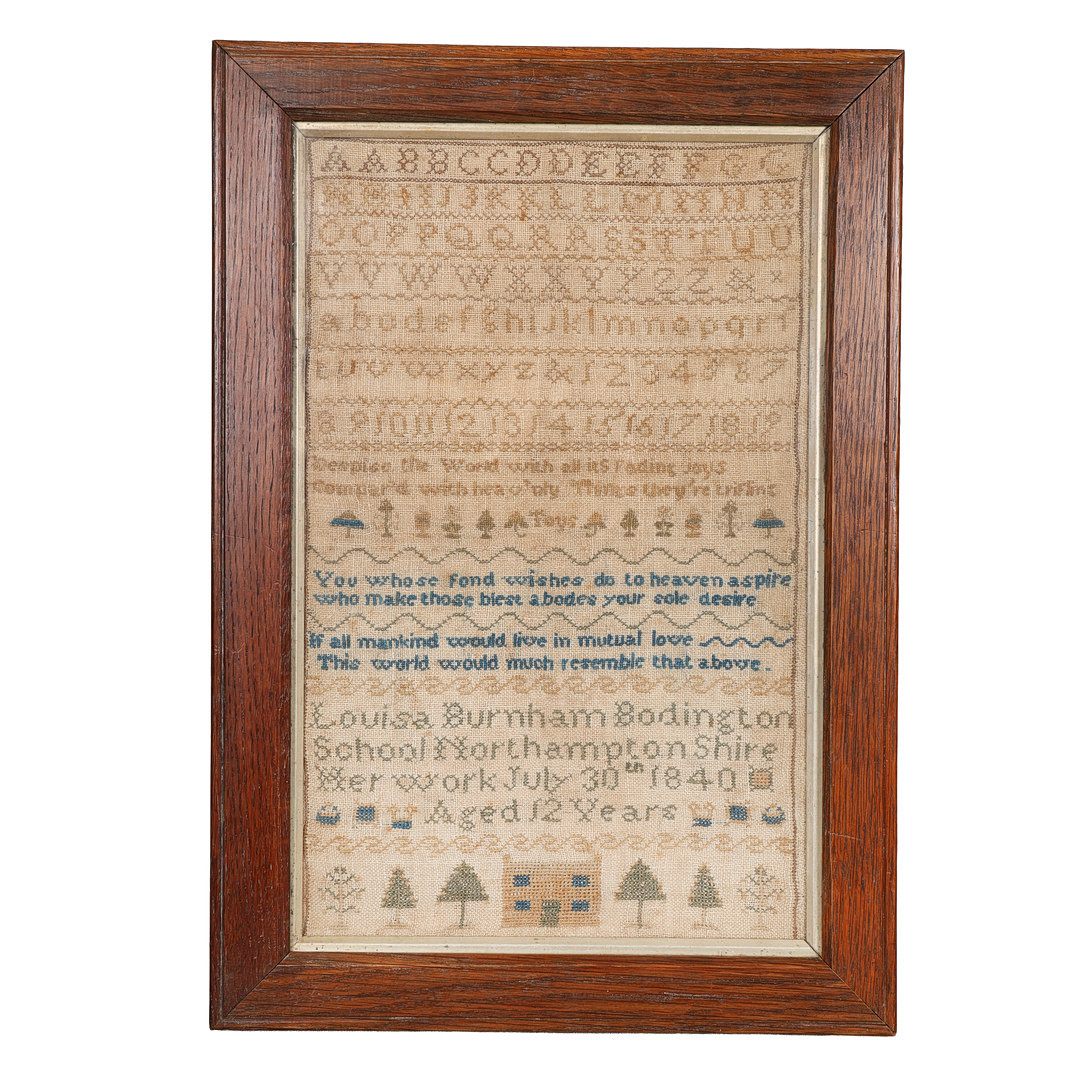 A A B B C C D D E E F F G G
H H I I J J K K L L M M N N
O O P P Q Q R R S S T T U U
V V W W X X Y Y Z Z & x
a b c d e f g h i j k l m n o p q r f
t u v w x y z & 1 2 3 4 5 6 7
8 9 10 11 12 13 14 15 16 17 18 19
Despise the World with all its Fading Joys
Compar'd with heav'nly Things they're trifling
Toys
You whose fond wishes do to heaven aspire
who make those blest abodes your sole desire
If all mankind would live in mutual love
This world would much resemble that above.
Louisa Burnham Bodington
School Northampton Shire
Her work July 30th 1840
Aged 12 Years